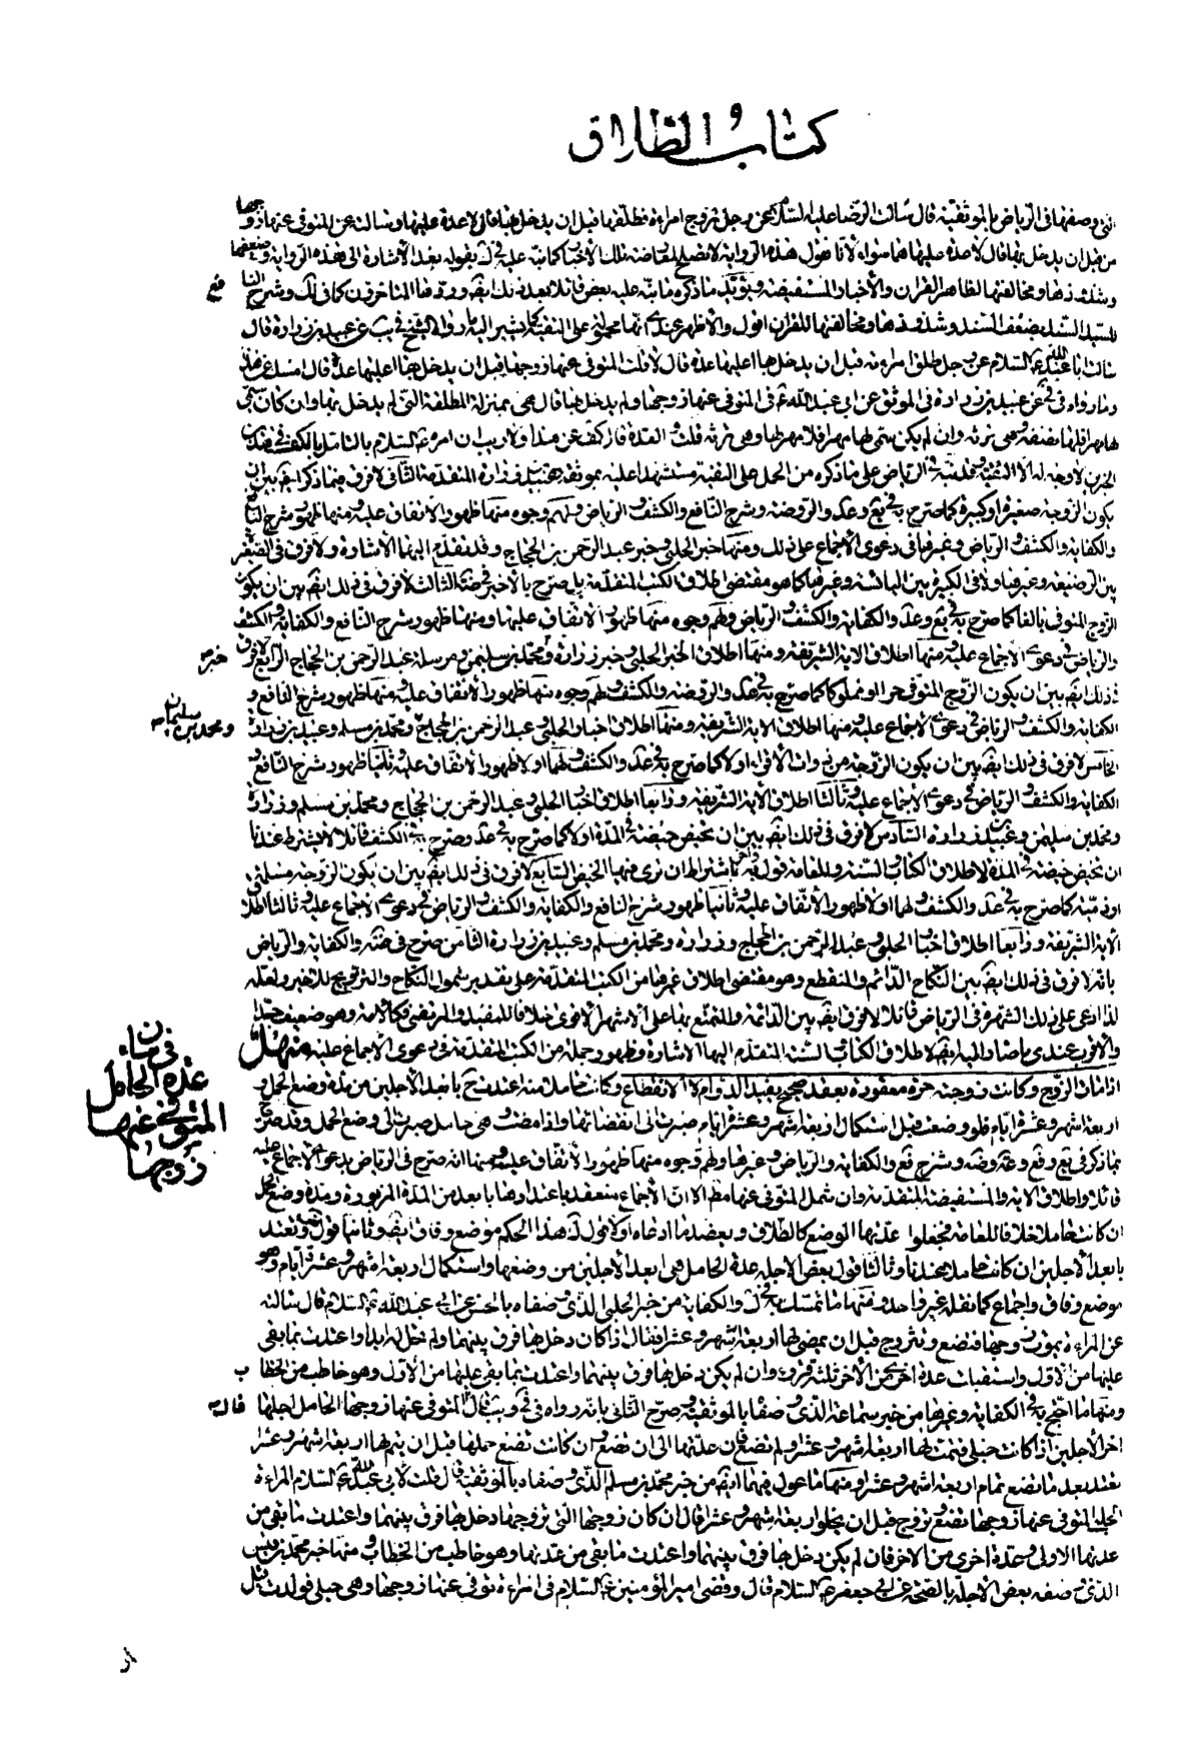 كتاب الطلاق
التى وصفها فى الرياض بالموثقية قال سألت الرضا عليه السلم عن رجل تزوج امراءة فطلقها قبل ان يدخل بها قال لا عدة عليها وسالته عن المتوفى عنها زوجها
من قبل ان يدخل بها قال لا عدة عليها هما سواء لانا نقول هذه الرواية لا تصلح لمعارضة تلك الأخبار كما نبه عليه فى بقوله بعد الأشارة الى هذه الرواية وضعفها
وشذوذها ومخالفتها لظاهر القران والأخبار المستفيضة ويؤيد ما ذكره ما نبه عليه بعض قائلا بعد ذلك ايضا وردها المتأخرون كافى لك وشرح النا
فع
للسيد السند بضعف السند وشذوذها ومخالفتها للقران اقول والأظهر عندى انها محمولة على التقية كما يشير اليه ما رواه الشيخ فى عن عبيد بن زرارة قال
سالت ابا عبد الله ع السلام عن رجل طلق امراءته قبل ان يدخل بها اعليها عدة قال لا قلت المتوفى عنها زوجها قبل ان يدخل بها اعليها عدة قال امسك عن هذا
وما رواه فى عن عبيد بن زرارة فى الموثق عن ابى عبد الله ع فى المتوفى عنها زوجها ولم يدخل بها قال هى بمنزلة المطلقة التى لم يدخل بها وان كان سمى
لها مهرا فلها نصفه وهى ترثه وان لم يكن سمى لها مهرا فلا مهر لها وهى ترثه قلت و العدة قال كف عن هذا ولا ريب ان امره ع السلام بالكف فى هذين
الخبرين لا وجه له الا التقية الرياض على ما ذكره من الحمل على التقية مستشهدا عليه بموثقة عبيد بن زرارة المتقدمة الثانى لا فرق فيما ذكر ايضا بين ان
يكون الزوجة صغيرة او كبيرة كما صرح به فى يع وعد والروضة وشرح النافع والكشف والرياض ولهم وجوه منها ظهور الاتفاق عليه ومنها ظهور شرح النافع
والكفاية والكشف والرياض وغيرها فى دعوى الأجماع على ذلك ومنها خبر الحلبى وخبر عبد الرحمن بن الحجاج وقد تقدم اليهما الأشارة ولا فرق فى الصغر
بين الرضيعة وغيرها ولا فى الكبيرة بين اليائسة وغيرها كما هو مقتضى اطلاق الكتب المتقدمة بل صرح بالأخير فى ضة الثالث لا فرق فى ذلك ايضا بين ان يكون
الزوج المتوفى بالغا كما صرح به فى يع وعد والكفاية والكشف والرياض ولهم وجوه منها ظهور الاتفاق عليه ومنها ظهور شرح النافع والكفاية والكشف
والرياض فى دعوى الأجماع عليه ومنها اطلاق الاية الشريفة ومنها اطلاق الخبر الحلبى وخبر زرارة ومحمد بن سليمن ومرسلة عبد الرحمن بن الحجاج الرابع لا فرق
خبر
ذلك ايضا بين ان يكون الزوج المتوفى حرا او مملوكا كما صرح به فى عد والروضة والكشف ولهم وجوه منها ظهور الأتفاق عليه ومنها ظهور شرح النافع و
الكفاية والكشف والرياض فى دعوى الأجماع عليه ومنها اطلاق الاية الشريفة ومنها اطلاق اخبار الحلبى وعبد الرحمن بن الحجاج ومحمد بن مسلم وعبيد بن زرارة
ومحمد بن سليمان
الخامس لا فرق فى ذلك ايضا بين ان يكون الزوجة من ذوات الأقراء او لا كما صرح به فى عد والكشف ولهما اولا ظهور الاتفاق عليه وثانيا ظهور شرح النافع
الكفاية والكشف والرياض فى دعوى الأجماع عليه وثالثا اطلاق الأية الشريفة ورابعا اطلاق اخبار الحلبى وعبد الرحمن بن الحجاج ومحمد بن مسلم وزرارة
ومحمد بن سليمن وعبيد بن زرارة السادس لا فرق فى ذلك ايضا بين ان تحيض حيضة فى المدة او لا كما صرح به فى عد وصرح به فى الكشف قائلا لا يشترط عندنا
ان تحيض حيضة فى المدة لاطلاق الكتاب والسنة وللعامة قول باشتراط ان ترى فيها الحيض السابع لا فرق فى ذلك ايضا بين ان يكون الزوجة مسلمة
او ذمية كما صرح به فى عد والكشف ولهما اولا ظهور الأتفاق عليه وثانيا ظهور شرح النافع والكفاية والكشف والرياض فى دعوى الأجماع عليه وثالثا اطلا
الأية الشريفة ورابعا اطلاق اخبار الحلبى وعبد الرحمن بن الحجاج وزرارة ومحمد بن مسلم وعبيد بن زرارة الثامن صرح فى ضة والكفاية والرياض
بانه لا فرق فى ذلك ايضا بين النكاح الدائم والمنقطع وهو مقتضى اطلاق غيرها من الكتب المتقدمة على تقدير شمول النكاح والتزويج للاخير ولعله
لذا ادعى على ذلك الشهرة فى الرياض قائلا لا فرق ايضا بين الدائمة والمتمتع بها على الاشهر الأقوى خلافا للمفيد والمرتضى فكالامة وهو ضعيف جدا
والأقرب عندى ما صار اليه لاطلاق الكتاب والسنة المتقدم اليها الأشارة وظهور جملة من الكتب المتقدمة فى دعوى الأجماع عليه منهل
فى بيان
عدة الحامل
المتوفى عنها
زوجها
اذا مات الزوج وكانت زوجته حرة معقودة بعقد صحيح بقيد الدوام لا الانقطاع وكانت حاملا منه اعتدت ح بابعد الأجلين من مدة وضع الحمل و
اربعة اشهر وعشرة ايام فلو وضعت قبل استكمال اربعة اشهر وعشرة ايام صبرت الى انقضائها واذا مضت وهى حامل صبرت الى وضع الحمل وقد صرح
بما ذكر فى يع وفع وعد وضة وشرح فع والكفاية والرياض وغيرها ولهم وجوه منها ظهور الأتفاق عليه ومنها انه صرح فى الرياض بدعوى الأجماع عليه
قائلا واطلاق الاية والمستفيضة المتقدمة وان شمل المتوفى عنها مطلقا الا ان الأجماع منعقد باعتدادها بابعد من المدة المزبورة ومدة وضع الحمل
ان كانت حاملا خلافا للعامة فجعلوا عدتها الوضع كالطلاق ويعضد ما ادعاه اولا قول هذا الحكم موضع وفاق ايضا وثانيا قول وتعتد
بابعد الأجلين ان كانت حاملا عندنا وثالثا قول بعض الأجلة عدة الحامل هى ابعد الأجلين من وضعها واستكمال اربعة اشهر وعشرة ايام وهو
موضع وفاق واجماع كما نقله غير واحد ومنها ما تمسك به فى لك والكفاية من خبر الحلبى الذى وصفاه بالحسن عن ابى عبد الله ع السلام قال سالته
عن المراءة يموت زوجها فتضع وتتزوج قبل ان يمضى لها اربعة اشهر وعشرا فقال اذا كان دخل بها فرق بينهما ولم تحل له ابدا واعتدت بما بقى
عليها من الأول واستقبلت عدة اخرى من الأخر ثلثة قروء وان لم يكن دخل بها فرق بينهما واعتدت بما بقى عليها من الأول وهو خاطب من الخطاب
ومنها ما احتج به فى الكفاية وغيرها من خبر سماعة الذى وصفا بالموثقية وصرح الثانى بانه رواه فى وقال المتوفى عنها زوجها الحامل اجلها
قال
اخر الأجلين اذا كانت حبلى فتمت لها اربعة اشهر وعشر ولم تضع فان عدتها الى ان تضع وان كانت تضع حملها قبل ان يتم لها اربعة اشهر وعشر
تعتد بعد ما تضع تمام اربعة اشهر وعشر ومنها ما عول فيهما ايضا من خبر محمد بن مسلم الذى وصفاه بالموثقية قال قلت لابى عبد الله ع السلام المراءة
الحبلى المتوفى عنها زوجها تضع وتزوج قبل ان يخلو اربعة اشهر وعشر قال ان كان زوجها الذى تزوجها دخل بها فرق بينهما واعتدت ما بقى من
عدتها الاولى وعدة اخرى من الاخر فان لم يكن دخل بها فرق بينهما واعتدت ما بقى من عدتها وهو خاطب من الخطاب ومنها خبر محمد بن قيس
الذى وصفه بعض الأجلة بالصحة عن ابى جعفر ع السلام قال وقضى امير المؤمنين ع السلام فى امراءة توفى عنها زوجها وهى حبلى فولدت قبل
ار